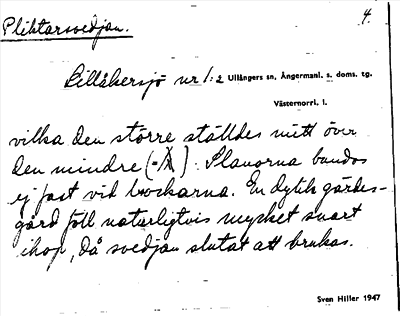 Pliktarsvedjan.
4.
Lillåkersjö nr 1:2 Ullångers sn, Ångermanl. s. doms. tg.
Västernorrl. l.
vilka den större ställdes mitt över
den mindre ( ). Slanorna bundos
ej fast vid bockarna. En dylik gärdes-
gård föll naturligtvis mycket snart
ihop, då svedjan slutat att brukas.
Sven Hiller 1947